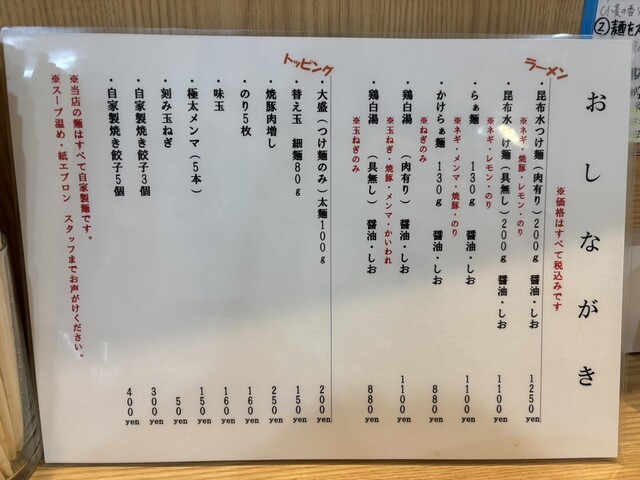 おしながき
※価格はすべて税込みです
ラーメン
・昆布水つけ麺(肉有り)200g 醤油・しお 1250yen
※ネギ・焼豚・レモン・のり
・昆布水つけ麺(具無し)200g 醤油・しお 1100yen
※ネギ・レモン・のり
・らぁ麺 130g 醤油・しお 1100yen
※ネギ・メンマ・焼豚・のり
・かけらぁ麺 130g 醤油・しお 880yen
※ねぎのみ
・鶏白湯 (肉有り) 醤油・しお 1100yen
※玉ねぎ・焼豚・メンマ・かいわれ
・鶏白湯 (具無し) 醤油・しお 880yen
※玉ねぎのみ
トッピング
・大盛(つけ麺のみ)太麺100g 200yen
・替え玉 細麺80g 150yen
・焼豚肉増し 250yen
・のり5枚 160yen
・味玉 160yen
・極太メンマ(5本) 150yen
・刻み玉ねぎ 50yen
・自家製焼き餃子3個 300yen
・自家製焼き餃子5個 400yen
※当店の麺はすべて自家製麺です。
※スープ温め・紙エプロン スタッフまでお声がけください。